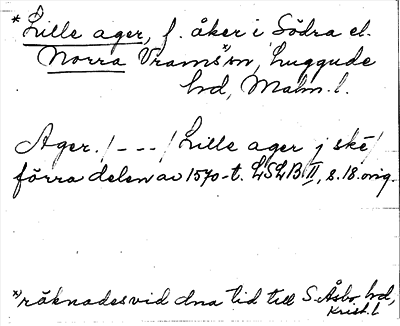 * Lille ager, f. åker i Södra el.
Norra Vrams*sn, Luggude
hd, Malm. l.
Ager. / - - - / Lille ager j ske /
förra delen av 1570-t. LSLB II, s. 18. orig.
*) räknades vid dna tid till S. Åsbo hd,
Krist. l